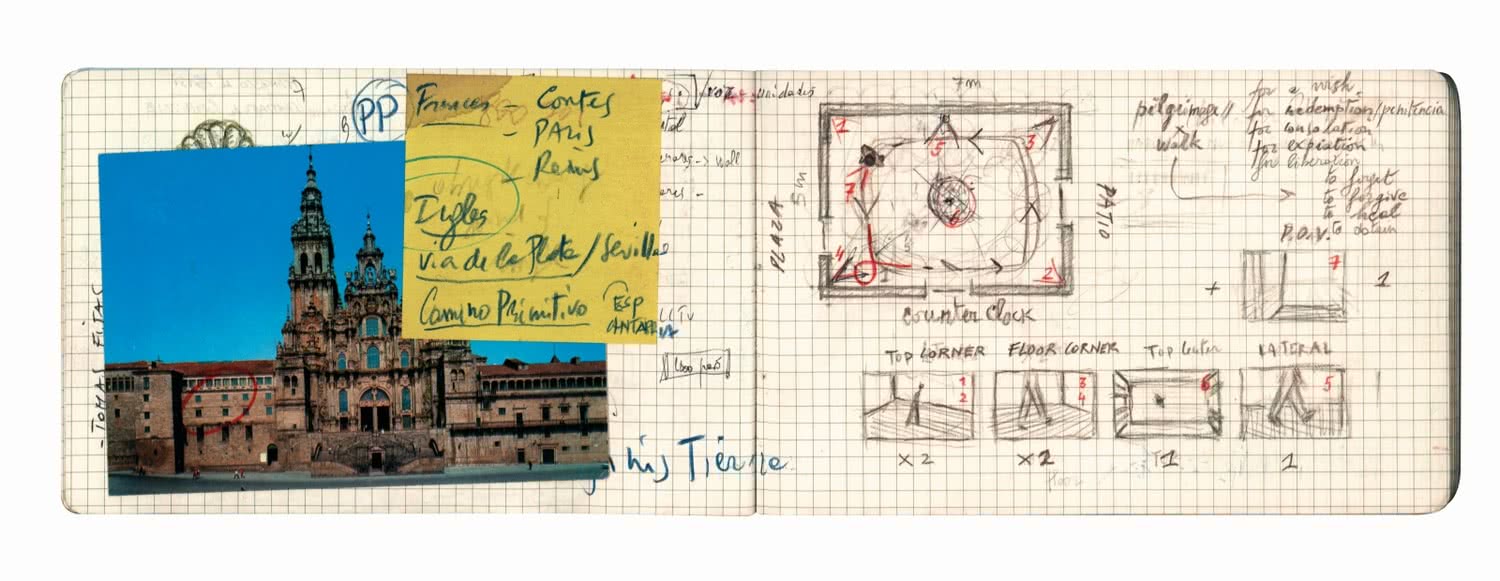 PP
Frances – Contes
– PARIS
– Reims
Ingles
Via de la Plata / Sevilla
Camino Primitivo
ESP
ANTARTIVA
- TOMAS FIJAS
unidades
wall
7m
5m
PLAZA
PATIO
1
5
3
7
6
4
2
Counter Clock
pilgrimage //
walk
for a wish
for redemption/penitencia
for consolation
for expiation
for liberation
to forget
to forgive
to heal
to obtain
P.O.V.
+
7
1
TOP CORNER
FLOOR CORNER
TOP Center
LATERAL
1
2
3
4
6
5
x2
x2
1
1